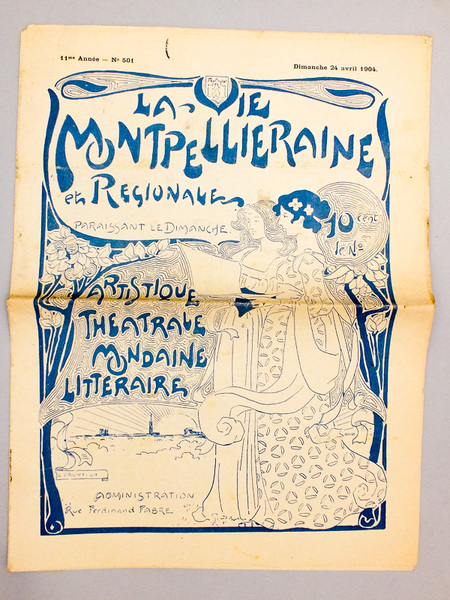 11me Année — No 501
Dimanche 24 avril 1904.
LA VIE
MONTPELLIERAINE
et REGIONALE
PARAISSANT LE DIMANCHE
10 cent
le No
ARTISTIQUE
THEATRALE
MONDAINE
LITTERAIRE
ADMINISTRATION
Rue Ferdinand FABRE